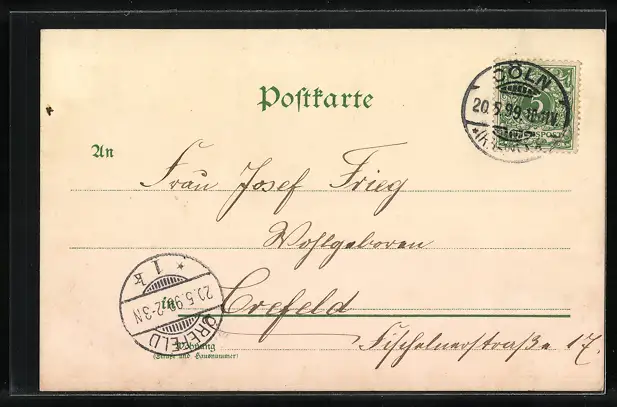 Postkarte
CÖLN
20.5.99
5
An
Frau Josef Frieg
Wohlgeboren
* 1 k
20.5.99 2-3N
CREFELD
in Crefeld
Fischelnerstraße 17.
Wohnung
(Straße und Hausnummer)